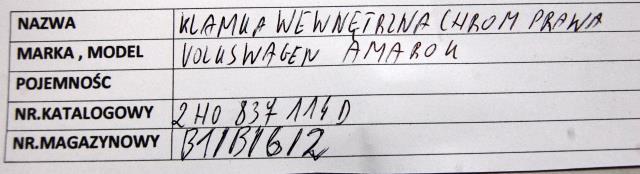 NAZWA KLAMKA WEWNĘTRZNA CHROM PRAWA
MARKA , MODEL VOLKSWAGEN AMAROK
POJEMNOŚĆ
NR.KATALOGOWY 2H0 837 114 D
NR.MAGAZYNOWY B1/B/6/2